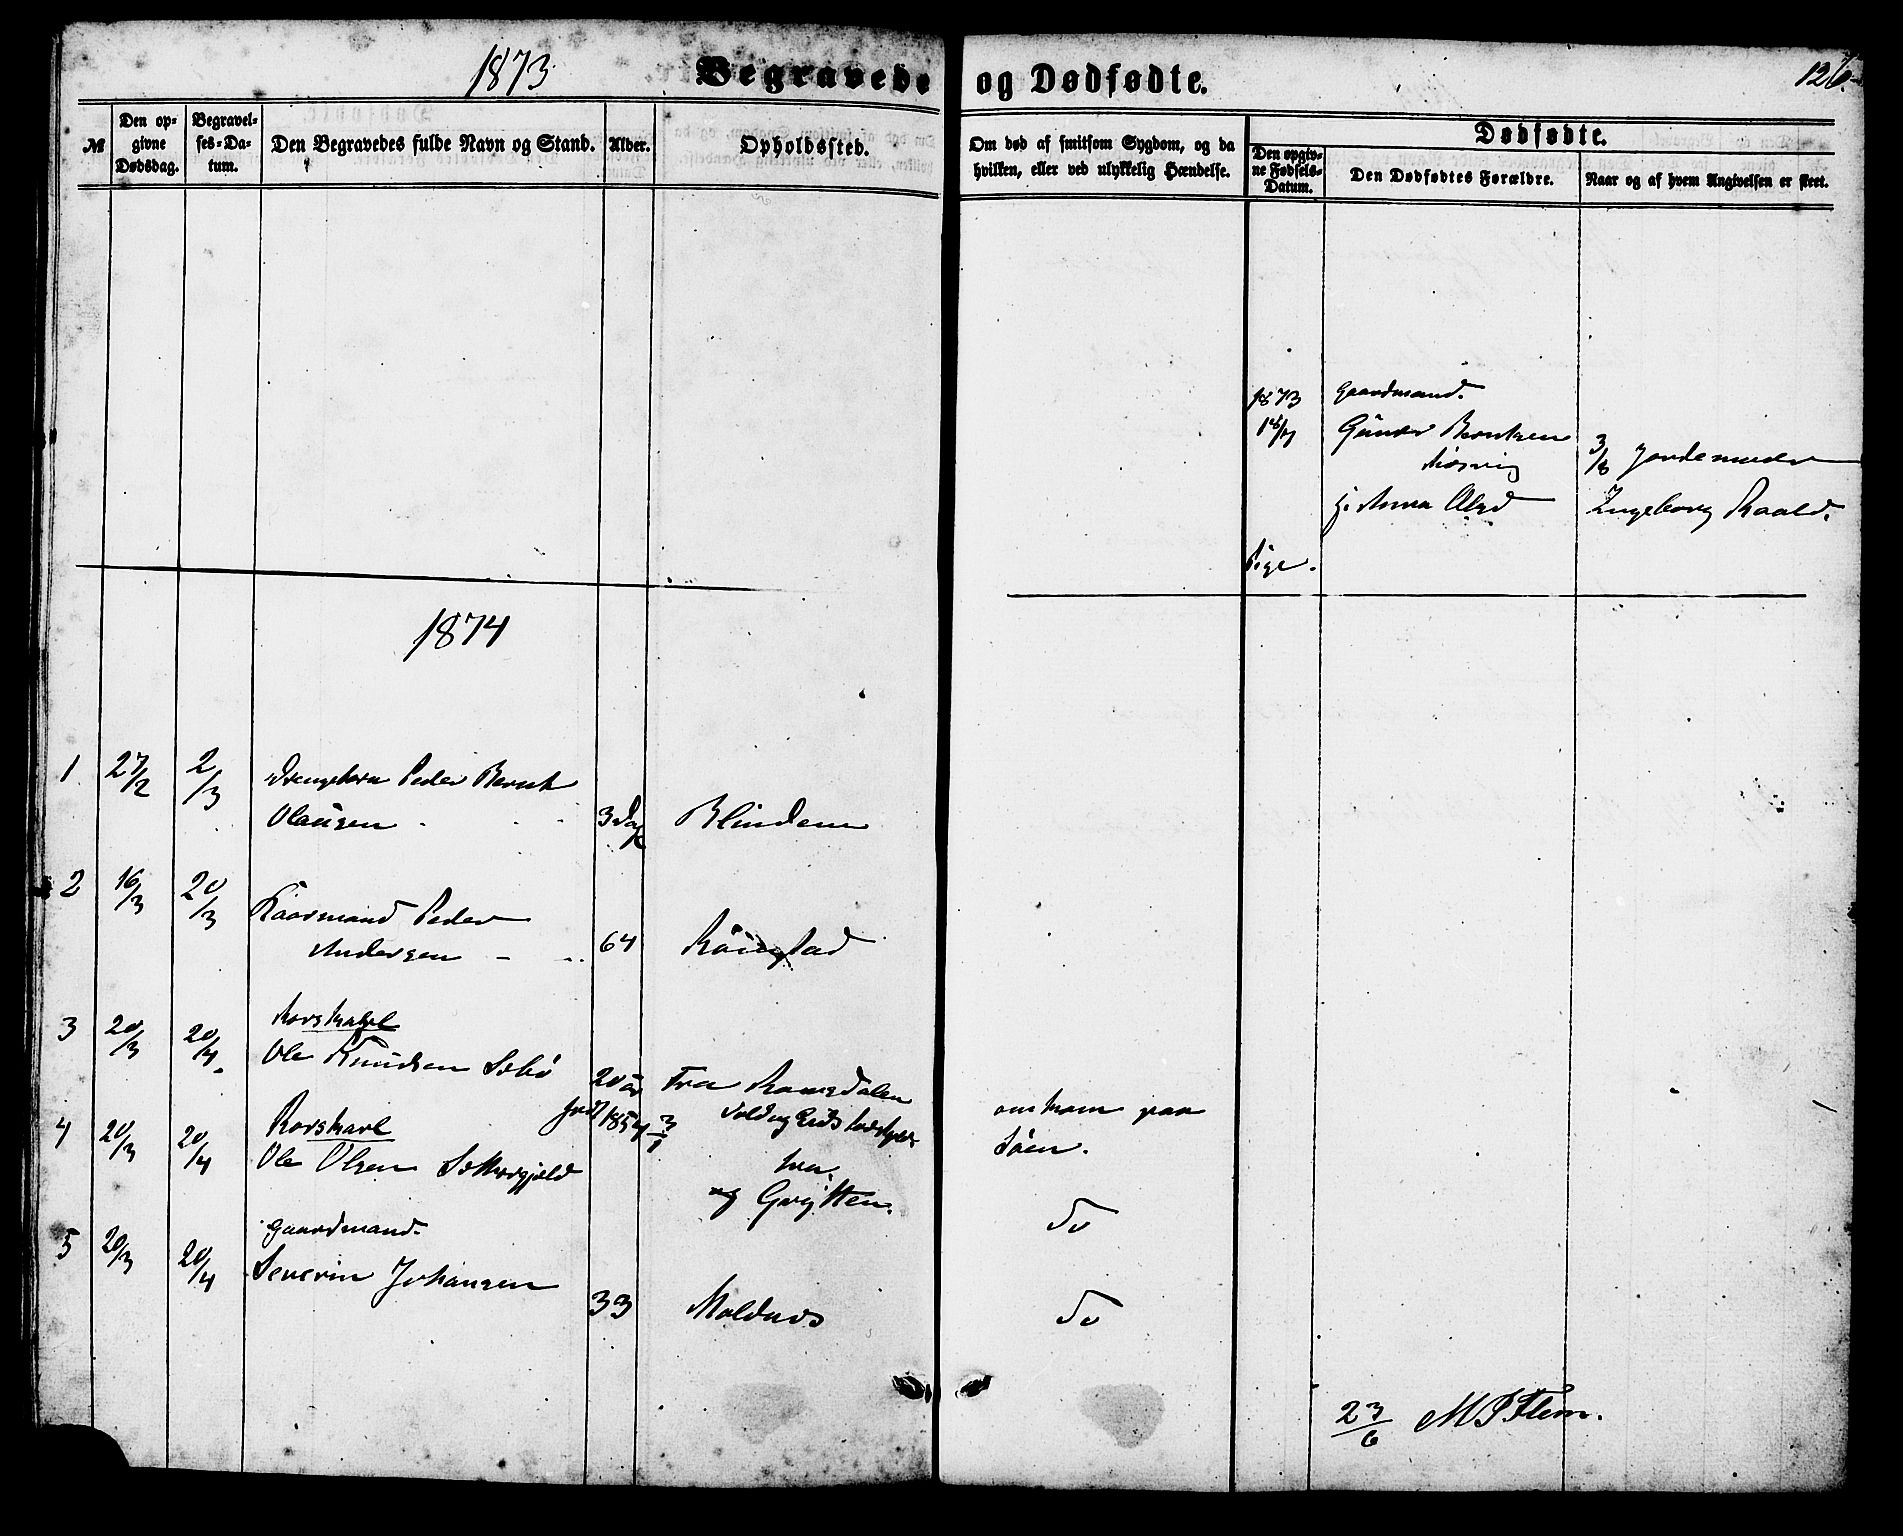 1873
Begravede og Dødfødte.
126.
№
Den opgivne Dødsdag.
Begravelses-Datum.
Den Begravedes fulde Navn og Stand.
Alder.
Opholdssted.
Om død af smitsom Sygdom, og da hvilken, eller ved ulykkelig Hændelse.
Dødfødte.
Den opgivne Fødsels-Datum.
Den Dødfødtes Forældre.
Naar og af hvem Angivelsen er skeet.
1873
gaardmand.
Gunder Berntsen
3/8 Jordemoder
H. Anna Olsd
Ingeborg Roald.
Pige.
1874
1 27/2 2/3 Drengebarn Peder Bernt
Olausen 3 Dage Blindem
2 16/3 20/3 Kaarmand Peder
Andersen 64 Röingstad
3 20/3 20/4 Rorskarl
Ole Knudsen Sebö 20 år Fra Romsdalen
4 20/3 20/4 Rorskarl
født 1854 3/1
omkom paa
Ole Olsen
Søen.
og Grytten.
Do
5 20/3 20/4 gaardmand.
Severin Johansen 33 Moldnæs Do
23/6 M P Flem.